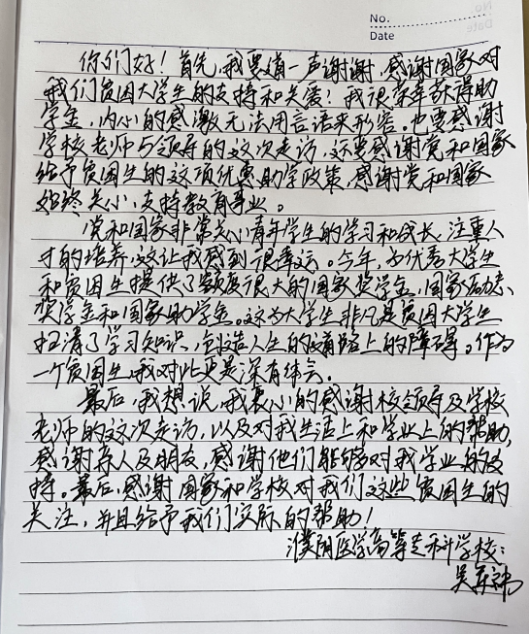 No.
Date
你们好！首先，我要道一声谢谢，感谢国家对
我们贫困大学生的支持和关爱！我很荣幸获得助
学金，内心的感激无法用言语来形容。也要感谢
学校老师与领导的这次走访，还要感谢党和国家
给予贫困生的这项优惠助学政策，感谢党和国家
始终关心、支持教育事业。
党和国家非常关心青年学生的学习和成长，注重人
才的培养，这让我感到很幸运。今年，为优秀大学生
和贫困生提供了额度很大的国家奖学金，国家励志
奖学金和国家助学金。这为大学生非凡是贫困大学生
扫清了学习知识、创造人生的道路上的障碍。作为
一个贫困生，我对此更是深有体会。
最后，我想说，我衷心的感谢校领导及学校
老师的这次走访，以及对我生活上和学业上的帮助，
感谢家人及朋友，感谢他们能够对我学业的支
持。最后，感谢国家和学校对我们这些贫困生的
关注，并且给予我们实际的帮助！
濮阳医学高等专科学校：
吴